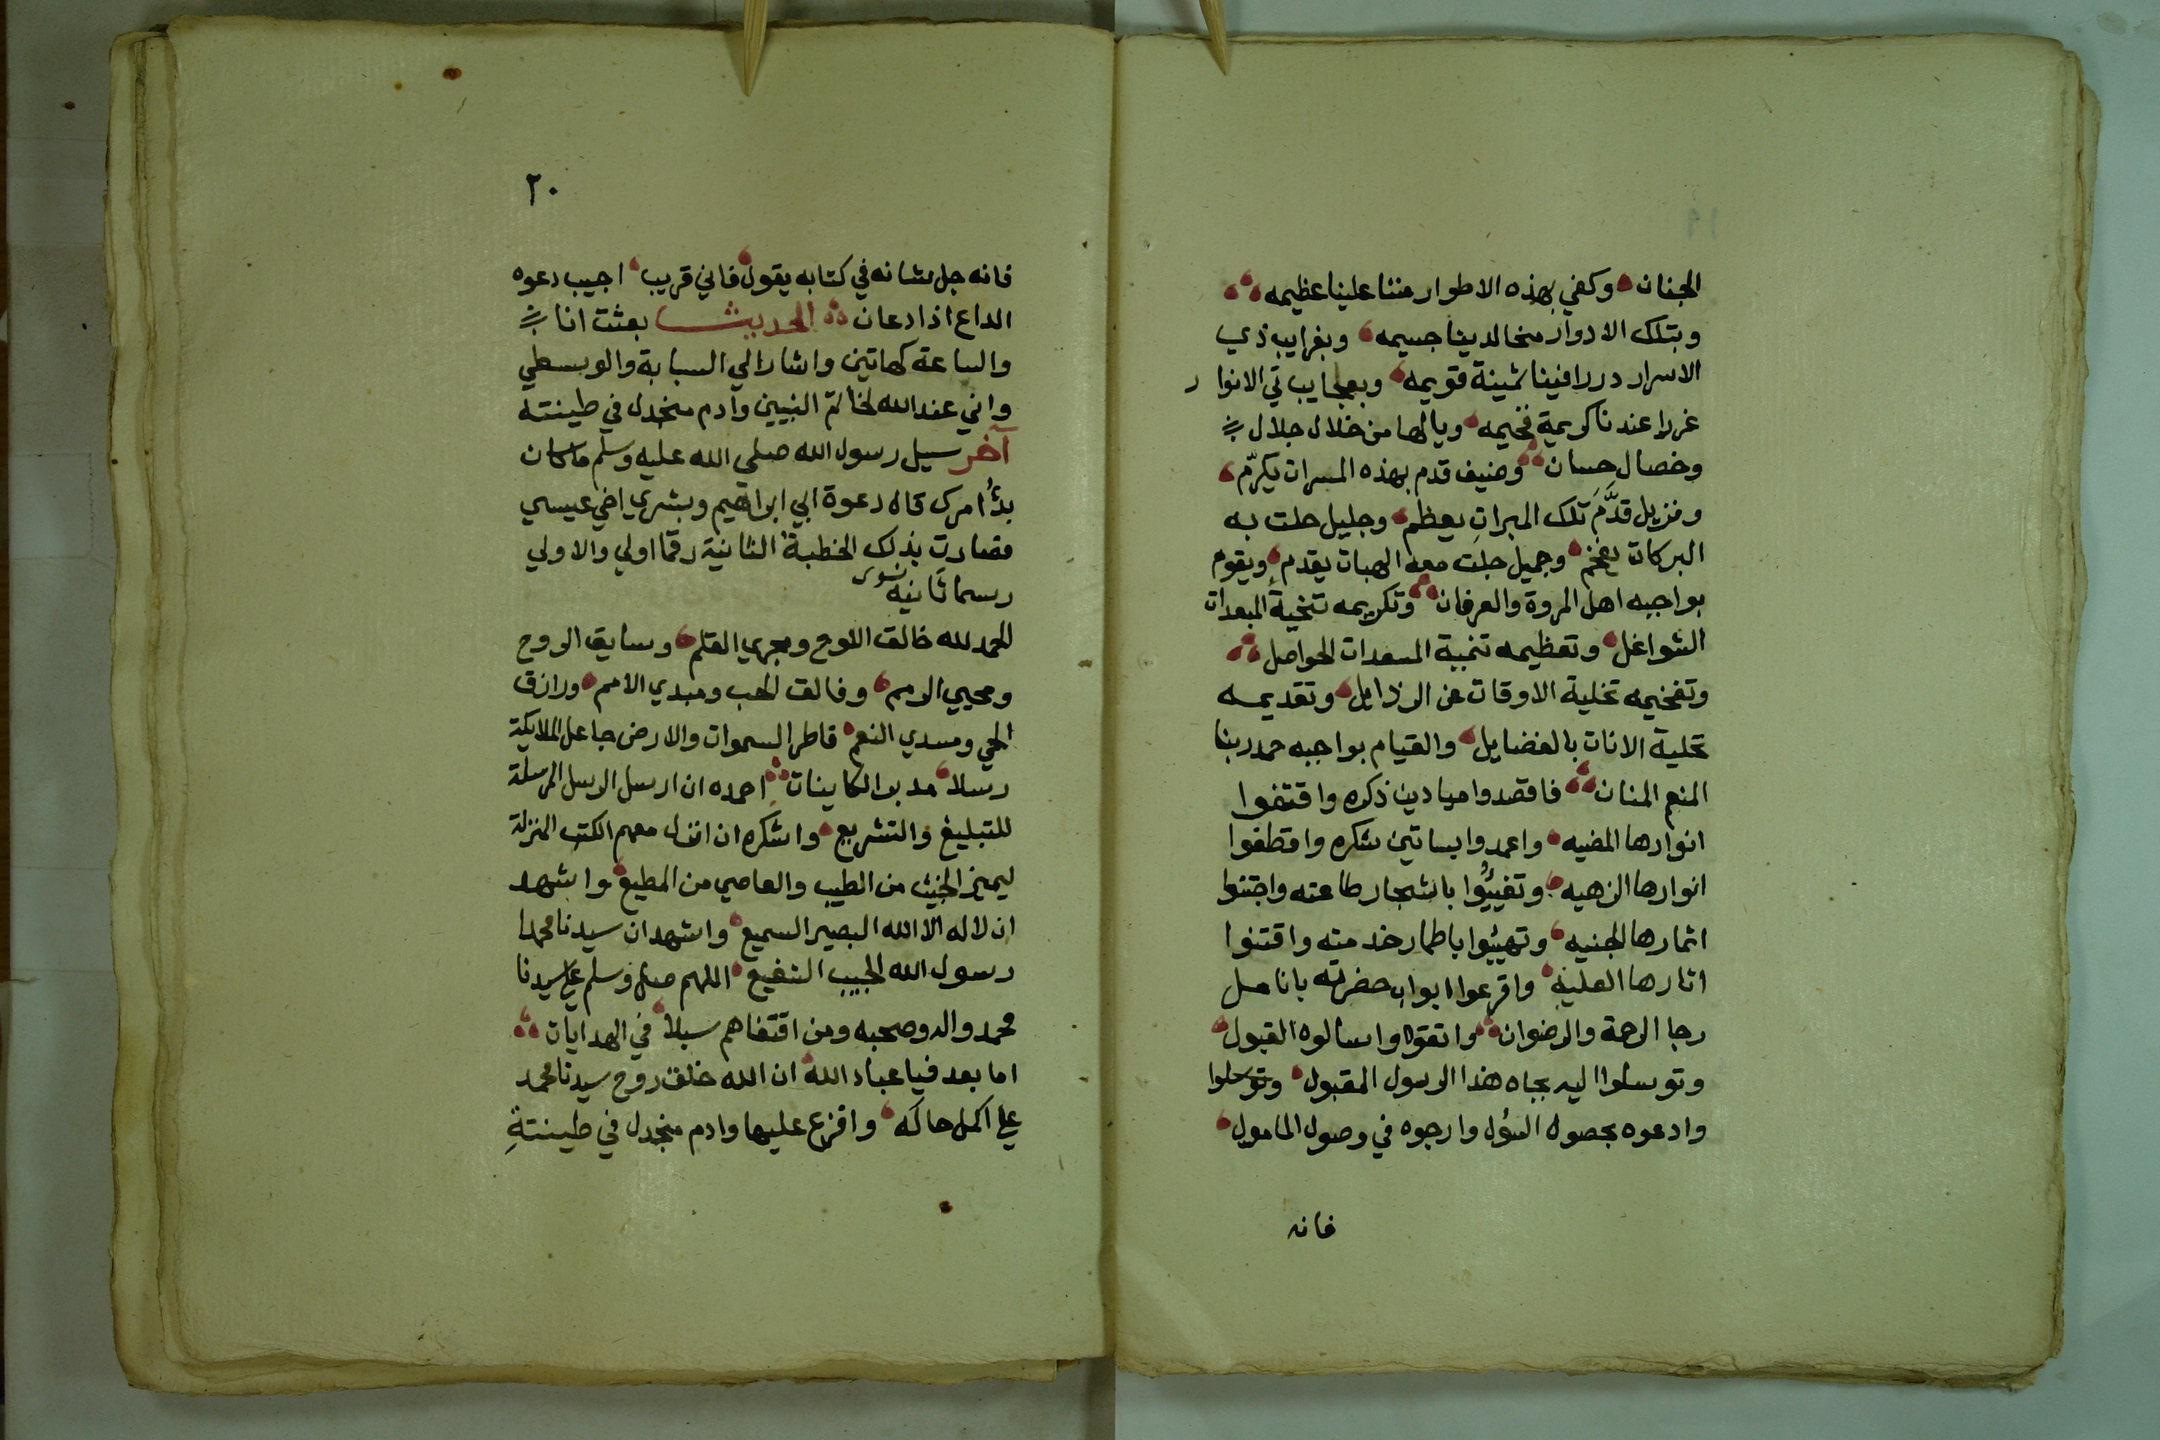 ١٩
الجنان وكفي بهذه الاطوار مننا علينا عظيمه
وبتلك الادوار منحا لدينا جسيمه وبغرايب ذي
الاسرار دررا فينا ثمينة قويمه وبعجايب تي الانوار
غررا عندنا كريمة فخيمه ويالها من خلال جلال
وخصال حسان وضيف قدم بهذه المسرات يكرّم
ونزيل قدَّمَ تلك المبراتِ يعظم وجليل حلت به
البركات يفخم وجميل جلت معه الهبات يقدم ويقوم
بواجبه اهل المروة والعرفان وتكريمه تنحية المبعدات
الشواغل وتعظيمه تنمية المسعدات الحواصل
وتفخيمه تخلية الاوقات عن الرذايل وتقديمه
تحلية الانات بالفضايل والقيام بواجبه حمد ربنا
المنعم المنان فاقصدوا ميادين ذكره واقتفوا
انوارها المضيه واعمدوا بساتين شكره واقطفوا
انوارها الزهيه وتفيئُوا باشجار طاعته واجتنوا
اثمارها الجنيه وتهيئوا باطمار خدمته واقتنوا
اثارها العلية واقرعوا ابواب حضرته بانامل
رجا الرحمة والرضوان واتقوه واسالوه القبول
وتوسلوا اليه بجاه هذا الرسول المقبول وتوسلوا
وادعوه بحصول السُول وارجوه في وصول المامول
فانه
٢٠
فانه جل شانه في كتابه يقول فاني قريب اجيب دعوه
الداع اذا دعان الحديث بعثت انا
والساعة كهاتين واشار الي السبابة والوسطي
واني عند الله لخاتم النبيين وآدم منجدل في طينته
آخر سيل رسول الله صلي الله عليه وسلم ما كان
بدُأ امرك قال دعوة ابي ابراهيم وبشري اخي عيسي
فصارت بذلك الخطبة الثانية رقما اولي والاولي
رسما ثانية
الحمد لله خالق اللوح ومجري القلم وسايق الروح
ومحيي الرمم وفالق الحب ومبدي الامم ورازق
الحي ومسدي النعم فاطر السموات والارض جاعل الملايكة
رسلا مدبر الكاينات احمده ان ارسل الرسل المرسلة
للتبليغ والتشريع واشكره ان انزل معهم الكتب المنزلة
ليميز الخبيث من الطيب والعاصي من المطيع واشهد
ان لا اله الا الله البصير السميع واشهد ان سيدنا محمدا
رسول الله الحبيب الشفيع اللهم صل وسلم علي سيدنا
محمد واله وصحبه ومن اقتفاهم سبلا في الهدايات
اما بعد فيا عباد الله ان الله خلق روح سيدنا محمد
علي اكمل حاله وافرغ عليها وادم منجدل في طينتهِ